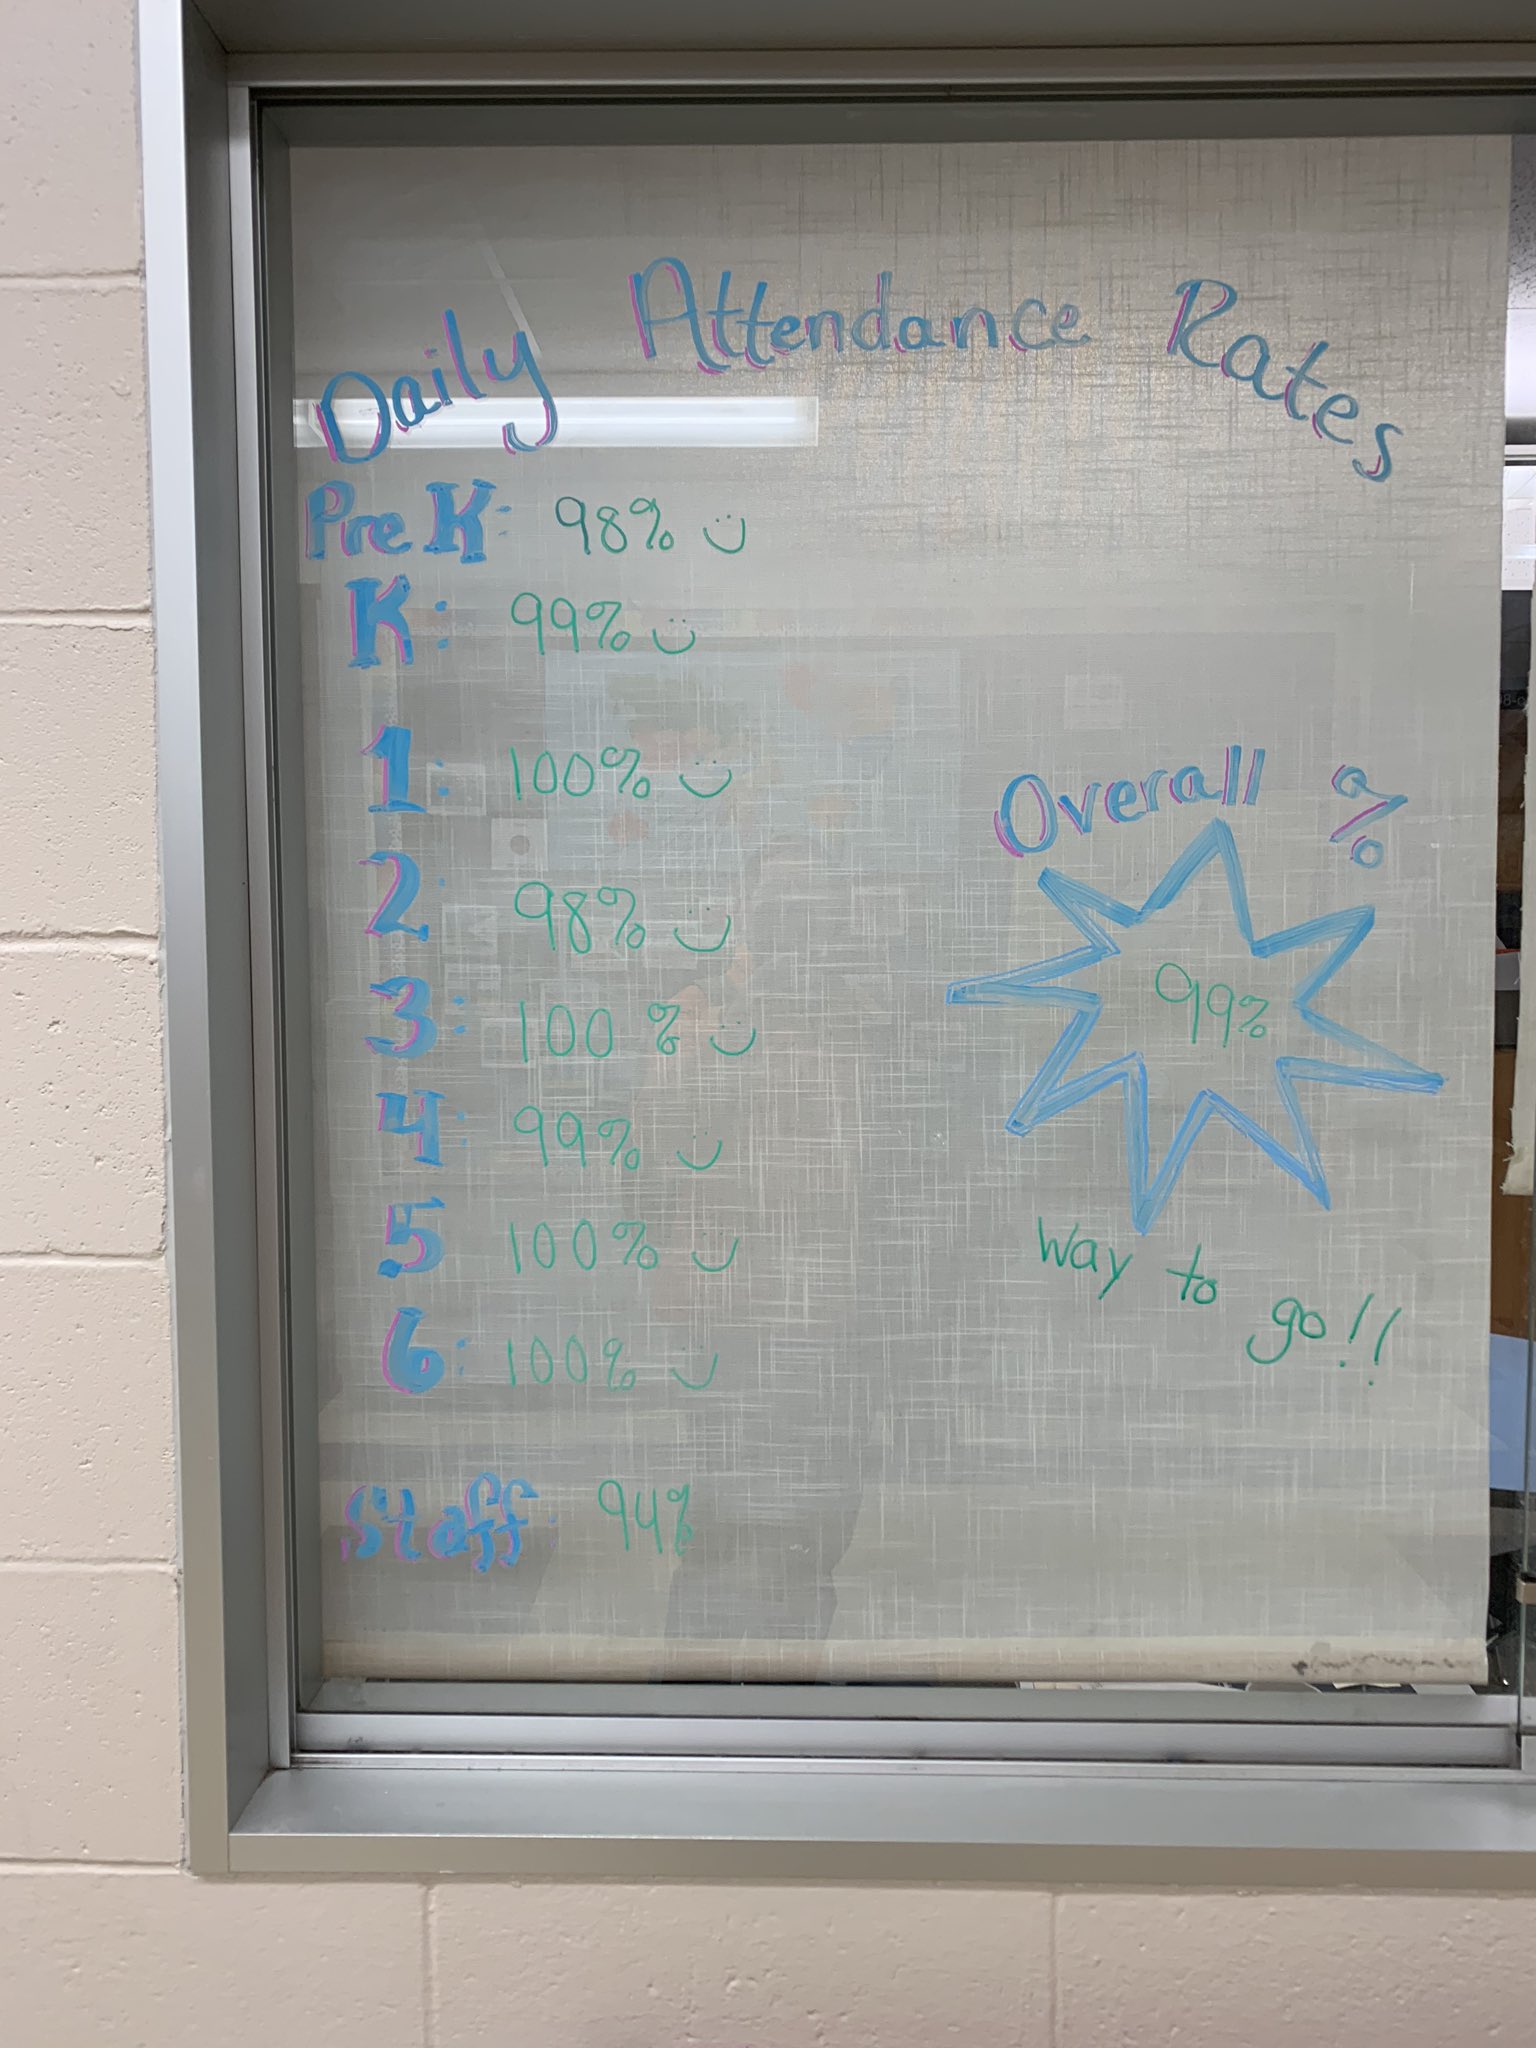 Daily Attendance Rates
Pre K: 98%
K: 99%
1: 100%
2: 98%
3: 100%
4: 99%
5 100%
6: 100%
Staff: 94%
Overall %
99%
Way to go!!